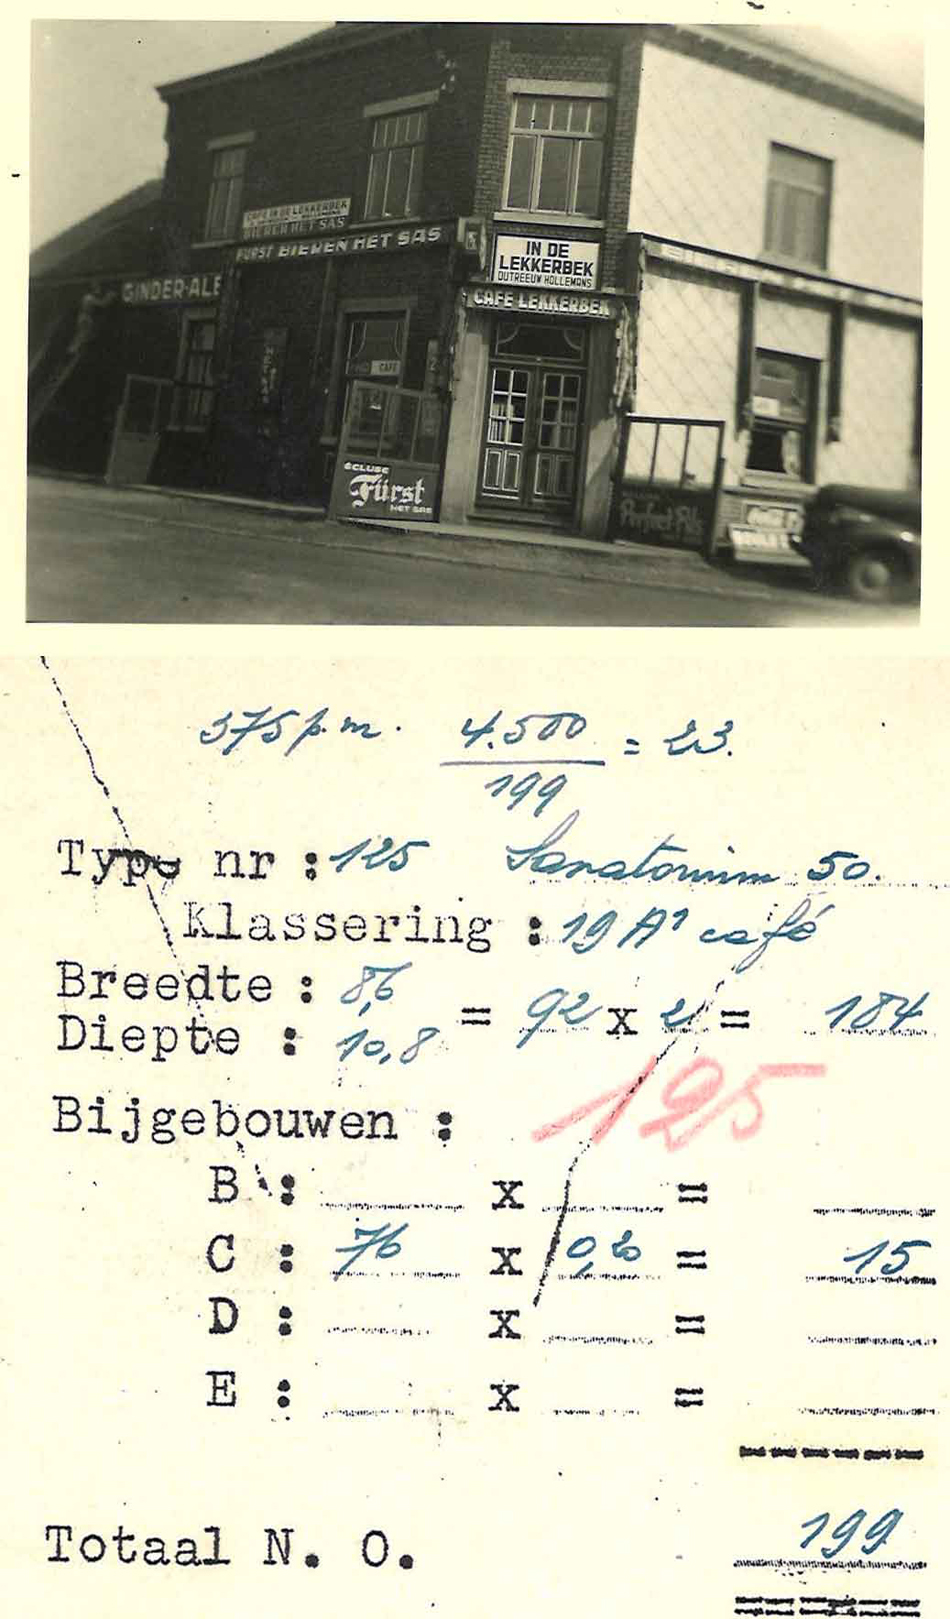 CAFE IN DE LEKKERBEK
BIEREN HET SAS
FÜRST BIEREN HET SAS
GINDER-ALE
IN DE
LEKKERBEK
DUTREEUW HOLLEMANS
CAFE LEKKERBEK
CAFE
ECLUSE
Fürst
HET SAS
Perfect Pils
375 p.m. 4.500 = 23.
199
Type nr : 125 Sanatorium 50.
Klassering : 19 A¹ café
Breedte : 8,6
= 92 x 2 = 184
Diepte : 10,8
125
Bijgebouwen :
B : x =
C : 76 x 0,20 = 15
D : x =
E : x =
Totaal N. O. 199